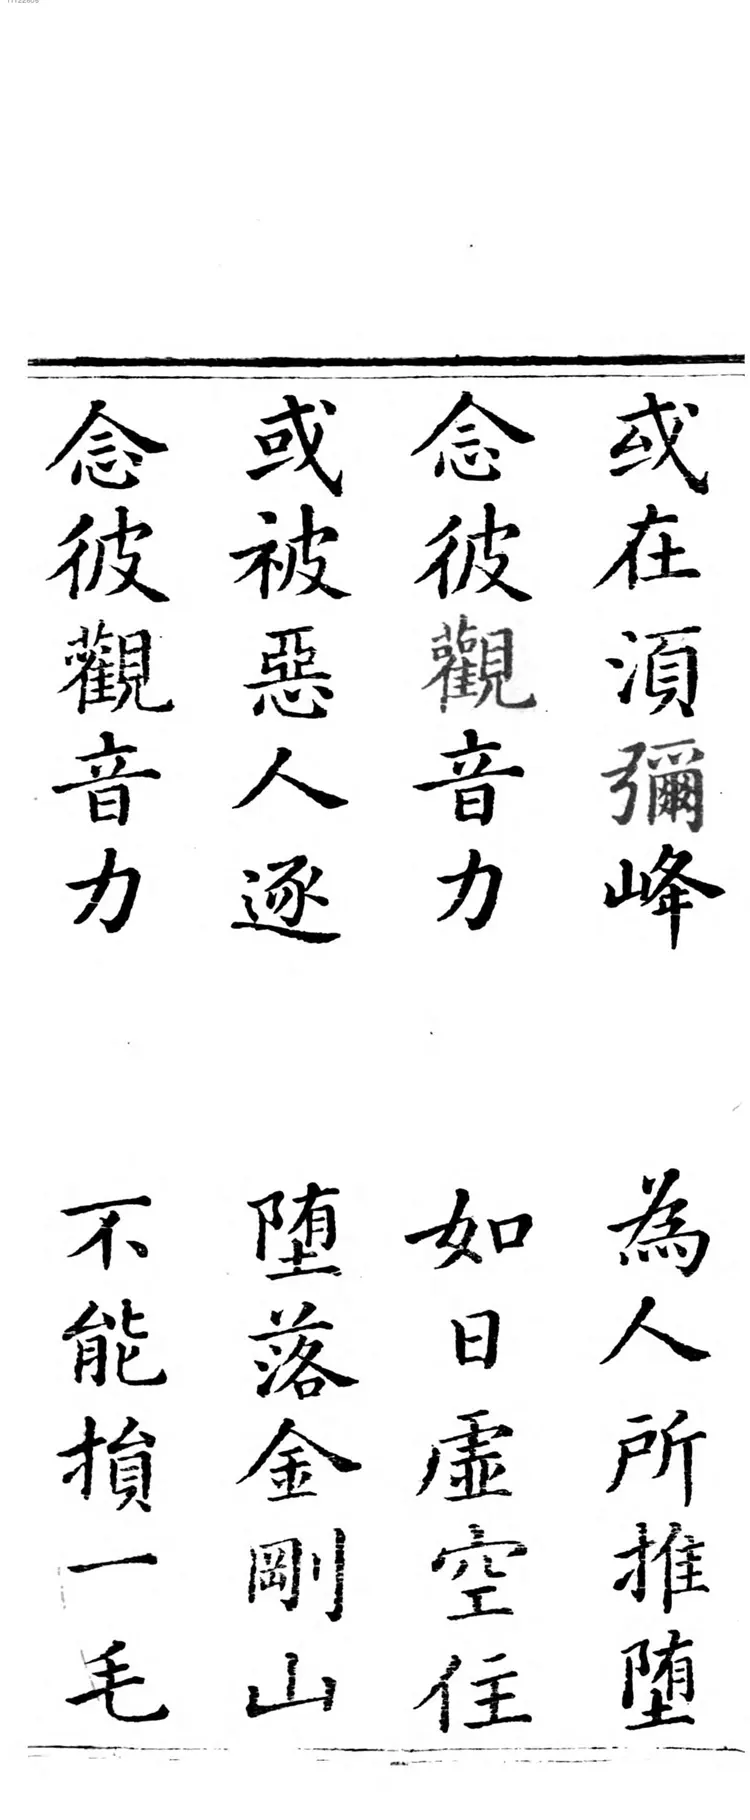 或在湏彌峰　為人所推堕
念彼觀音力　如日虛空住
或被惡人逐　堕落金剛山
念彼觀音力　不能損一毛